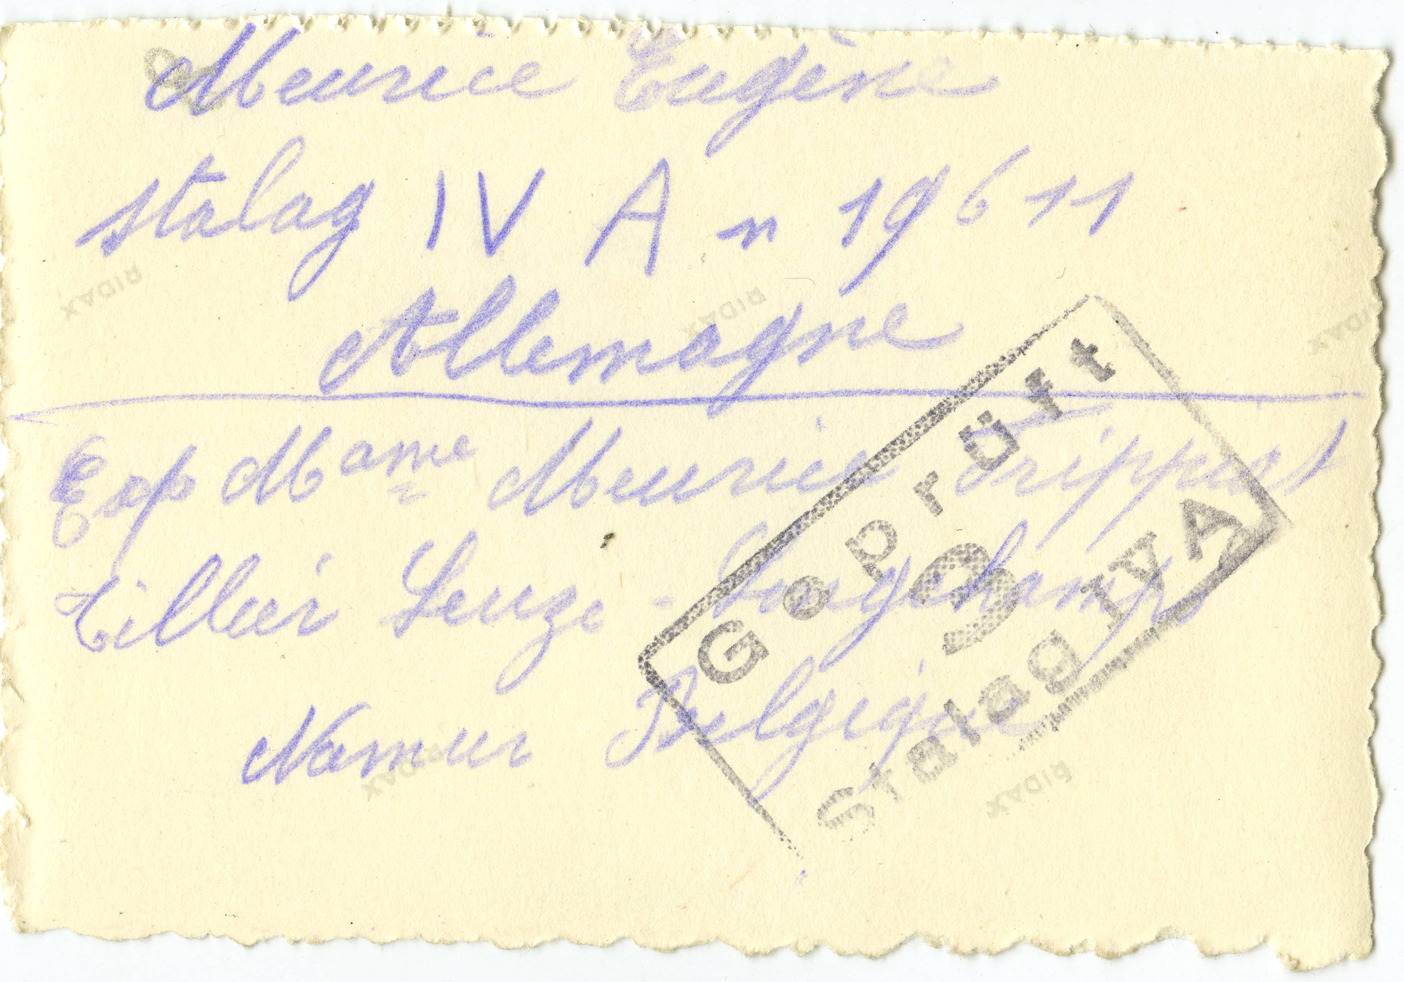 Meurice Eugène
stalag IV A n 19611
Allemagne
Exp Mame Meurice Trippest
Tillier Leuze - Longchamps
Namur Belgique
Geprüft
9
Stalag IVA
RIDAX
RIDAX
RIDAX
RIDAX
RIDAX